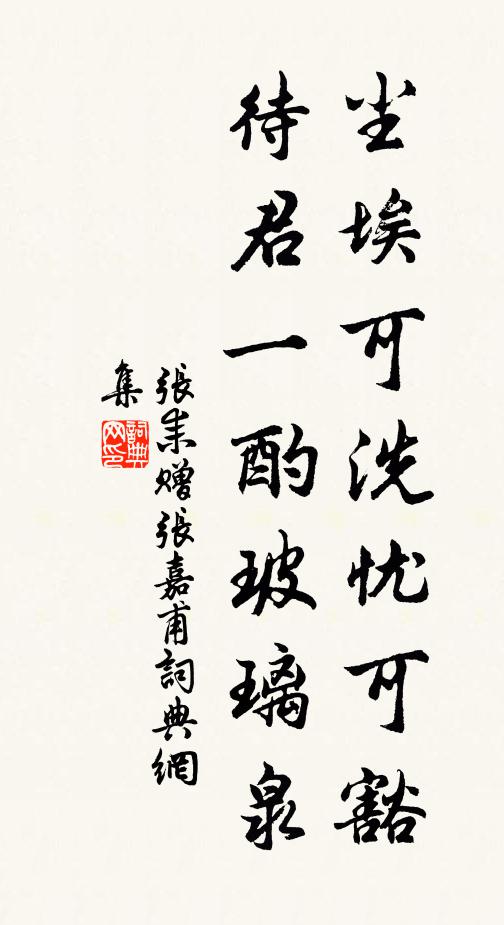 尘埃可洗忧可豁
待君一酌玻璃泉
張耒赠張嘉甫詞典網
集
詞典网印